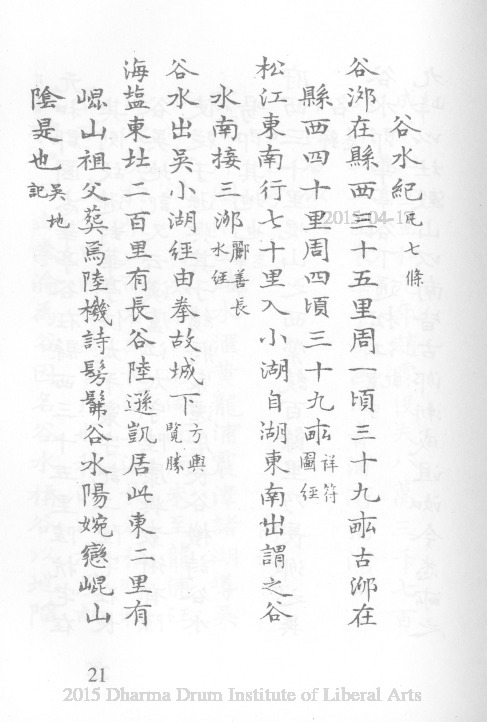 谷水紀凡七條
谷泖在縣西三十五里周一頃三十九畝古泖在
縣西四十里周四頃三十九畝祥符圖經
松江東南行七十里入小湖自湖東南出謂之谷
水南接三泖水經酈善長
谷水出吳小湖經由拳故城下方輿覽勝
海盐東北二百里有長谷陸遜凱居此東二里有
崐山祖父葬焉陸機詩髣髴谷水陽婉戀崐山
陰是也吳地記
2015-04-1
21
2015 Dharma Drum Institute of Liberal Arts